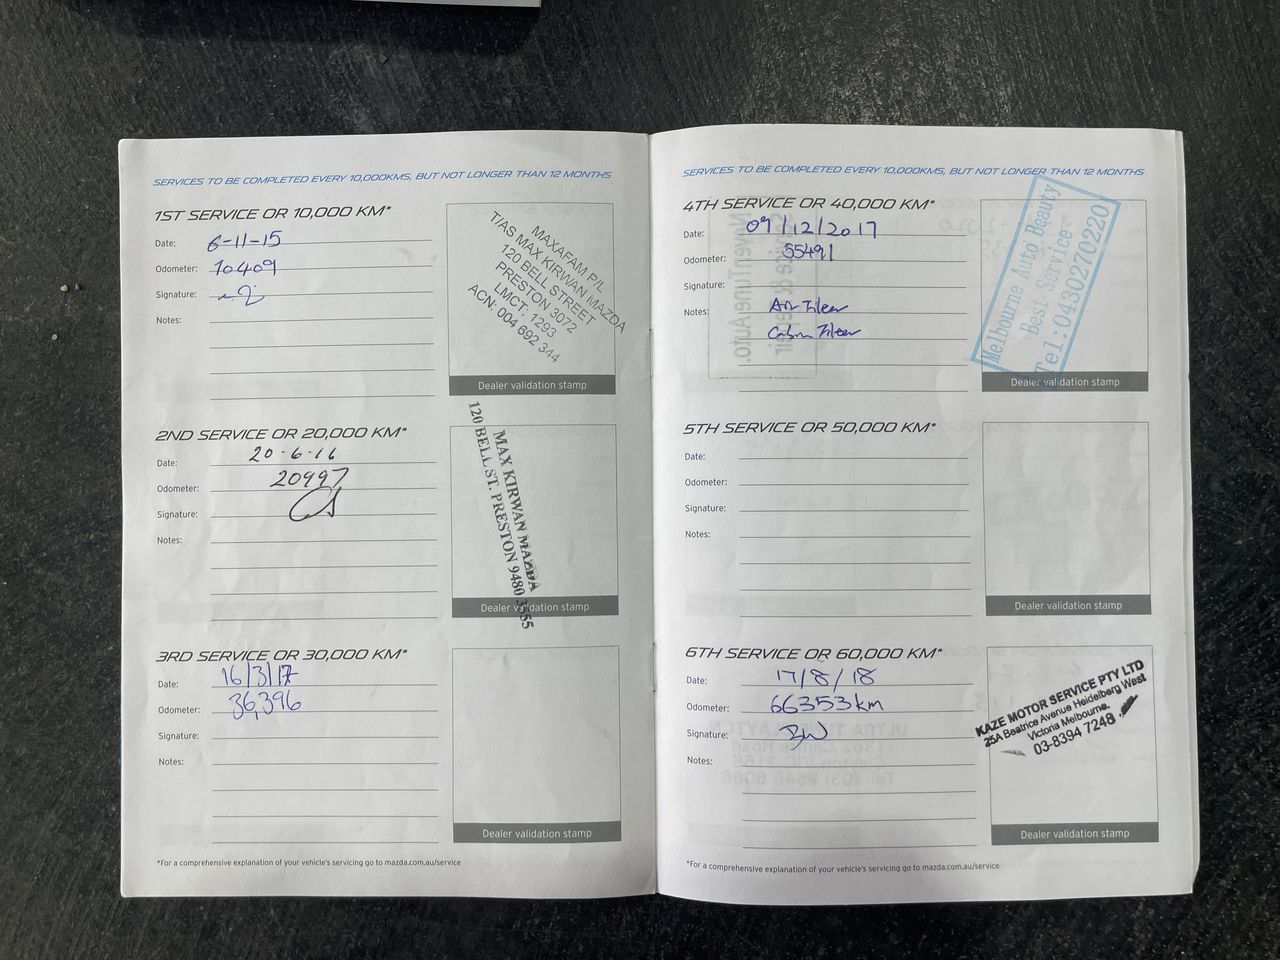 SERVICES TO BE COMPLETED EVERY 10,000KMS, BUT NOT LONGER THAN 12 MONTHS
1ST SERVICE OR 10,000 KM*
Date: 6-11-15
Odometer: 10409
Signature:
Notes:
MAXAFAM P/L
T/AS MAX KIRWAN MAZDA
120 BELL STREET
PRESTON 3072
LMCT: 1293
ACN: 004 692 344
Dealer validation stamp
2ND SERVICE OR 20,000 KM*
Date: 20.6.16
Odometer: 20997
Signature:
Notes:
MAX KIRWAN MAZDA
120 BELL ST. PRESTON 9480 3555
Dealer validation stamp
3RD SERVICE OR 30,000 KM*
Date: 16/3/17
Odometer: 36,396
Signature:
Notes:
Dealer validation stamp
*For a comprehensive explanation of your vehicle's servicing go to mazda.com.au/service
SERVICES TO BE COMPLETED EVERY 10,000KMS, BUT NOT LONGER THAN 12 MONTHS
4TH SERVICE OR 40,000 KM*
Date: 09/12/2017
Odometer: 55491
Signature:
Notes: Air Filter
Cabin Filter
Melbourne Auto Beauty
Best Service
Tel:0430270220
Dealer validation stamp
5TH SERVICE OR 50,000 KM*
Date:
Odometer:
Signature:
Notes:
Dealer validation stamp
6TH SERVICE OR 60,000 KM*
Date: 17/8/18
Odometer: 66353km
Signature: BW
Notes:
KAZE MOTOR SERVICE PTY LTD
25A Beatrice Avenue Heidelberg West
Victoria Melbourne.
03-8394 7248
Dealer validation stamp
*For a comprehensive explanation of your vehicle's servicing go to mazda.com.au/service